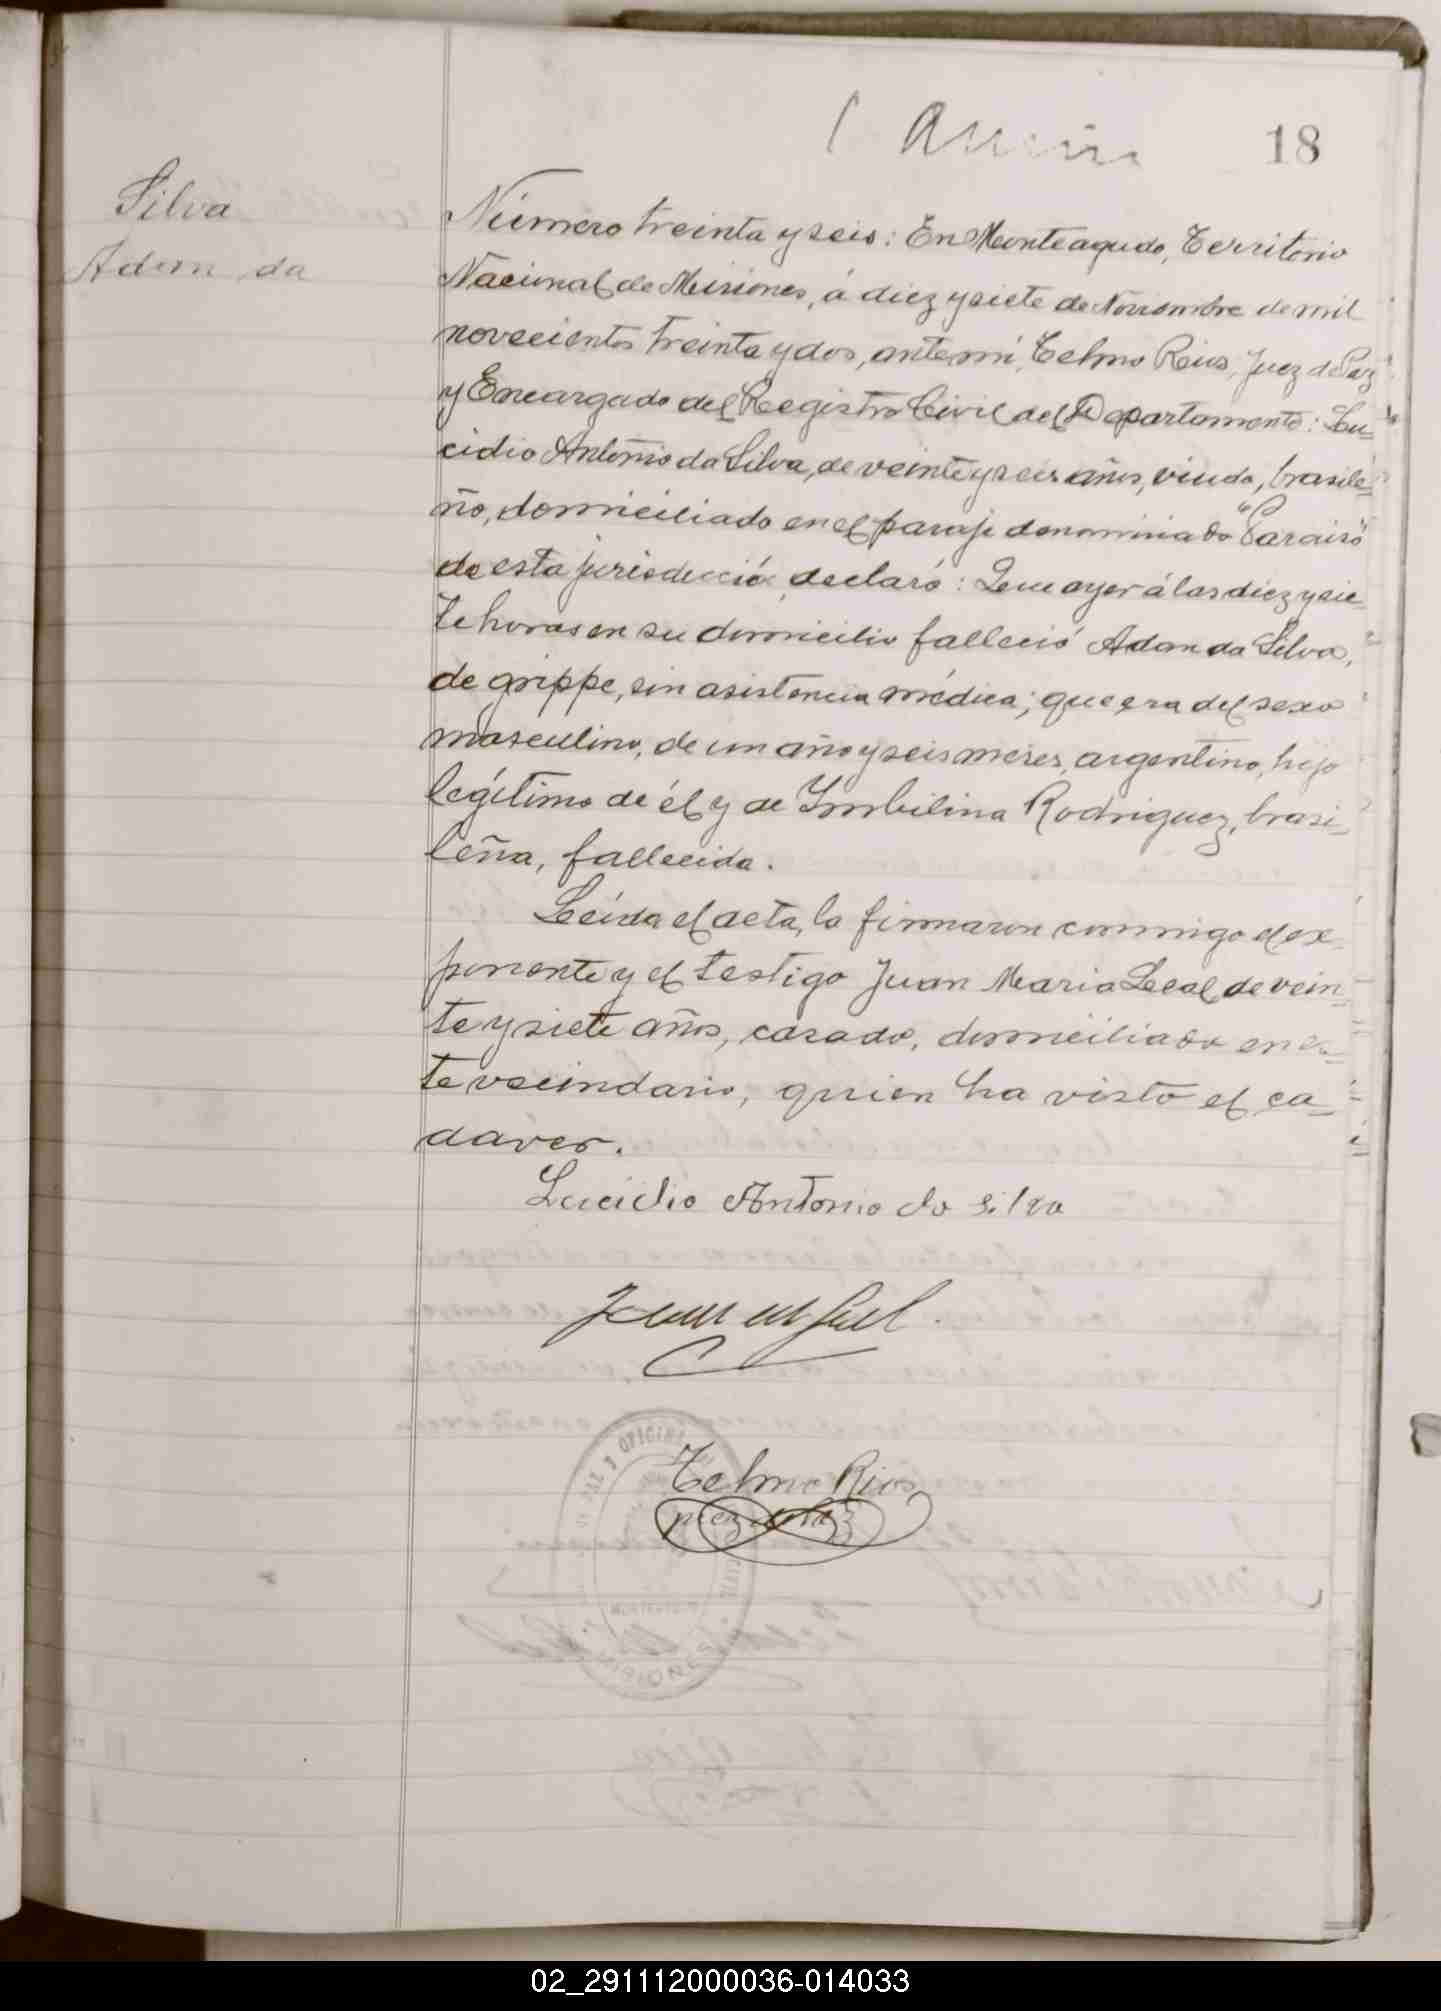 18
Silva
Adam da
Número treinta y seis: En Monteagudo, Territorio
Nacional de Misiones, á diez y siete de Noviembre de mil
novecientos treinta y dos, ante mi, Telmo Rios, Juez de Paz
y Encargado del Registro Civil del Departamento: Lu-
cidio Antonio da Silva, de veinte y seis años, viudo, brasile-
ño, domiciliado en el paraje denominado "Paraiso"
de esta jurisdicción, declaró: Que ayer á las diez y sie-
te horas en su domicilio falleció Adan da Silva,
de grippe, sin asistencia médica; que era del sexo
masculino, de un año y seis meses, argentino, hijo
legítimo de él y de Imbilina Rodriguez, brasi-
leña, fallecida.
Leída el acta, la firmaron conmigo el ex-
ponente y el testigo Juan Maria Leal de vein-
te y siete años, casado, domiciliado en es-
te vecindario, quien ha visto el ca-
daver.
Lucidio Antonio da Silva
Juan M Leal
Telmo Rios
juez de Paz
MISIONES
02_291112000036-014033